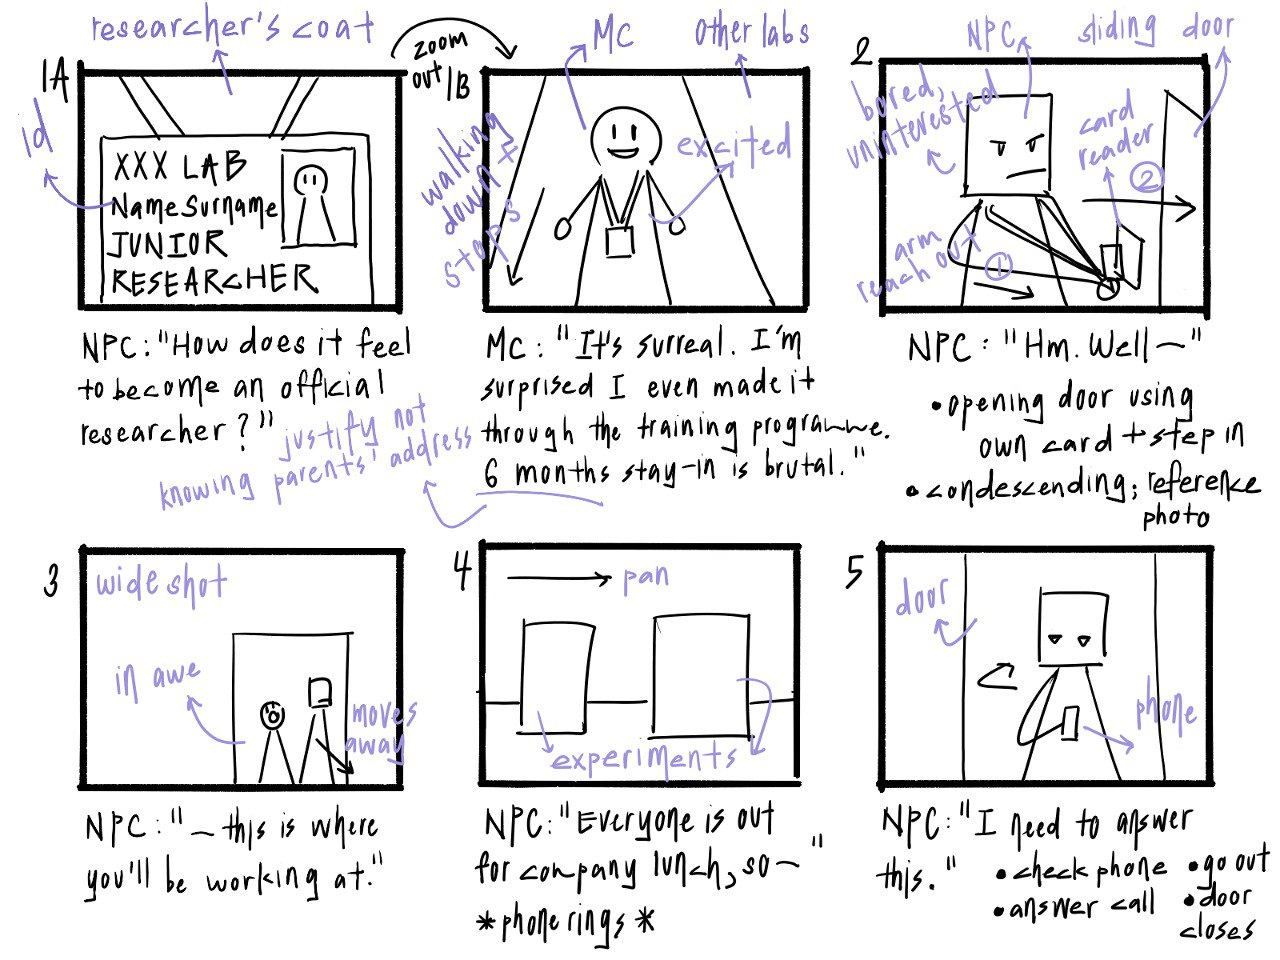 researcher's coat
1A
id
XXX LAB
Name Surname
JUNIOR
RESEARCHER
NPC: "How does it feel
to become an official
researcher?"
zoom
out/1B
MC
other labs
walking
down +
stops
excited
MC: "It's surreal. I'm
surprised I even made it
through the training programme.
6 months stay-in is brutal."
justify not
knowing parents' address
2
NPC
sliding door
bored,
uninterested
card
reader
2
arm
reach out
1
NPC: "Hm. Well—"
• opening door using
own card + step in
• condescending; reference
photo
3
wide shot
in awe
moves
away
NPC: "—this is where
you'll be working at."
4
pan
experiments
NPC: "Everyone is out
for company lunch, so—"
*phone rings*
5
door
phone
NPC: "I need to answer
this."
• check phone
• answer call
• go out
• door
closes